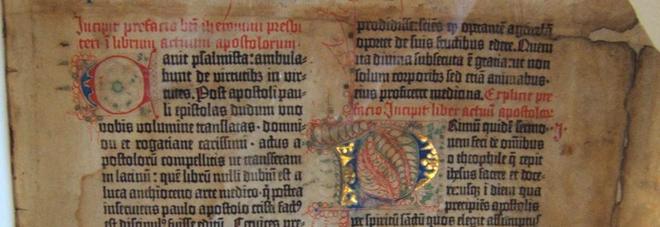 Incipit prefacio bti iheronimi presbi
teri ī librum actuum apostolorum.
Canit psalmista: ambula-
bunt de virtutibꝫ in vir-
tutes. Post apostoli pau-
li epistolas dudum uno
vobis volumine translatas. domni-
on et rogatiane carissimi. actus a-
postolorū compellitis ut transferam
in latinū: quē librum nulli dubiū est a
luca anthioceno arte medico. q̄ postea
inserviens paulo apostolo cristi factꝰ
est discipulꝰ fuisse editū. Cervices pre-
prodidisse: sciēs qꝫ operantē agricolā
oportet de suis fructibus edere. Quem
ita divina subsecuta ē gratia: ut non
solum corporibꝫ sed etiā animabus
eius proficeret medicina. Explicit pre
facio. Incipit liber actuū apostolorꝫ
Primū quidē sermo- I
nem feci de omibus
o theophile q̄ cepit
ihesus facere et doce-
re: usqꝫ ī diem qua
precipiēs apostolis
per spiritū sādū quos elegit assumptus